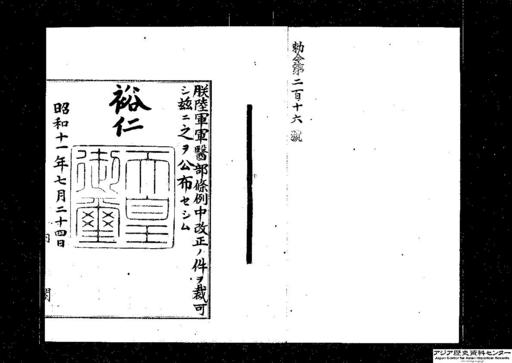 勅令第二百十六號
朕陸軍軍醫部條例中改正ノ件ヲ裁可
シ茲ニ之ヲ公布セシム
裕仁
天皇
御璽
昭和十一年七月二十四日
内閣
アジア歴史資料センター
Japan Center for Asian Historical Records